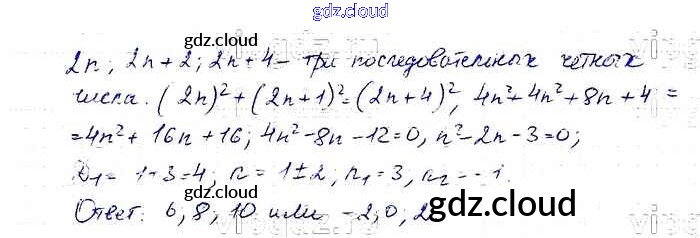 gdz.cloud
gdz.cloud
2n; 2n+2; 2n+4 – три последовательных четных
числа. (2n)²+(2n+1)²=(2n+4)², 4n²+4n²+8n+4=
=4n²+16n+16; 4n²-8n-12=0, n²-2n-3=0;
D₁= 1+3=4, n=1±2, n₁=3, n₂=-1.
gdz.cloud
Ответ: 6, 8, 10 или -2, 0, 2
gdz.cloud